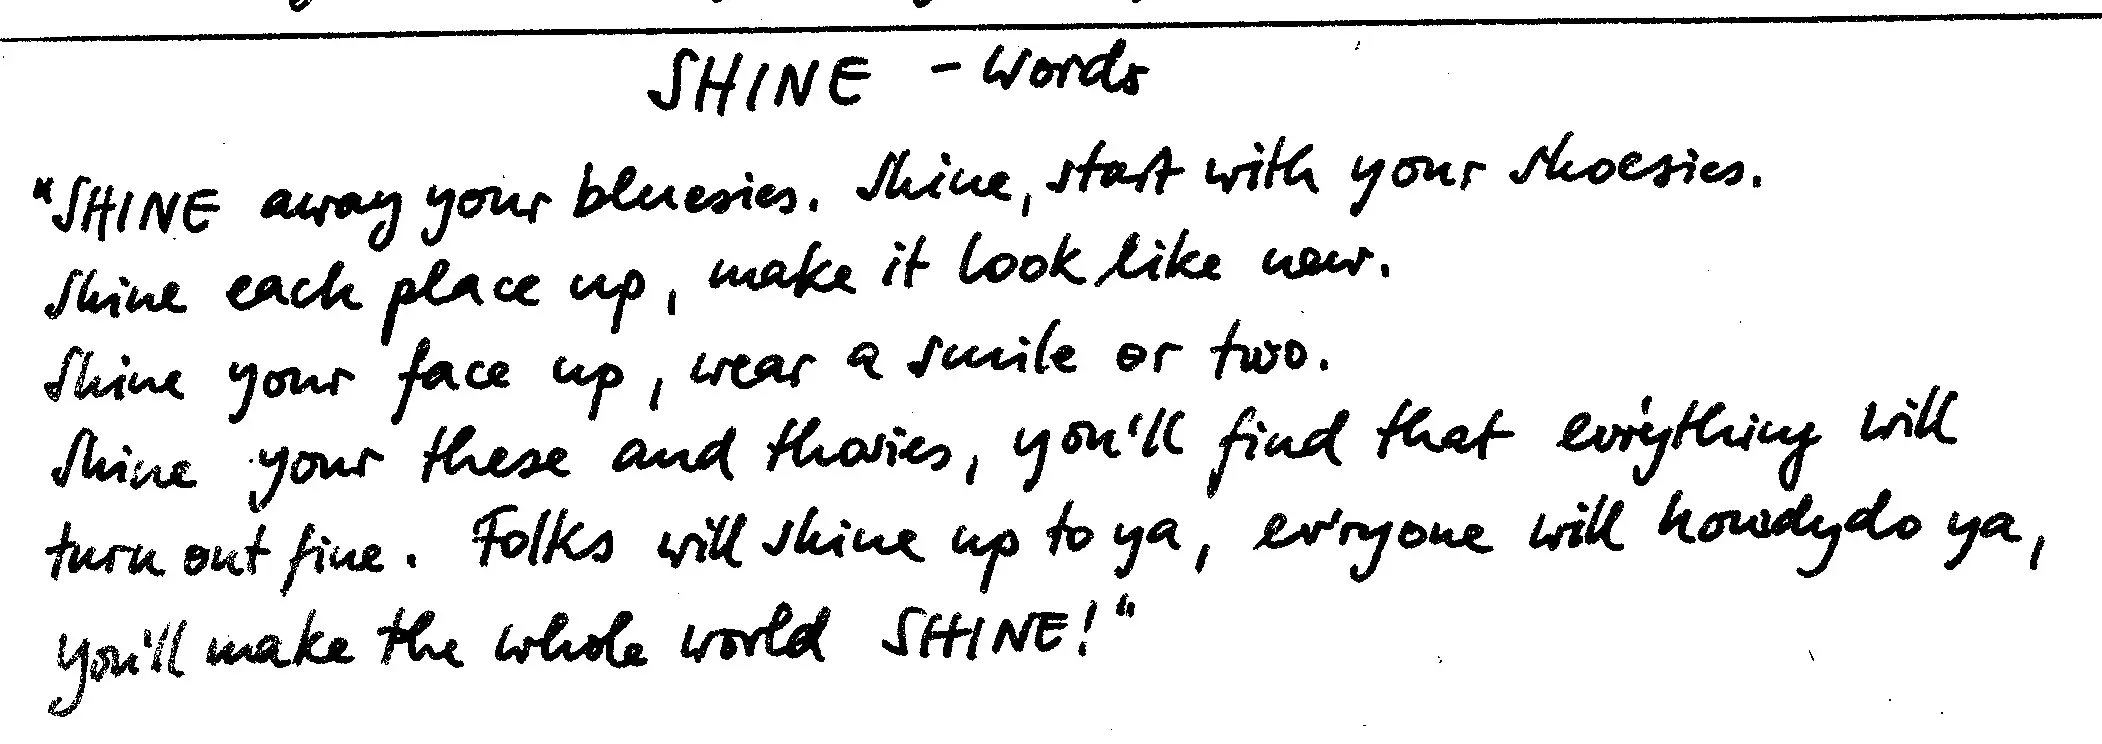 SHINE - Words
"SHINE away your bluesies. Shine, start with your shoesies.
Shine each place up, make it look like new.
Shine your face up, wear a smile or two.
Shine your these and thosies, you'll find that ev'rything will
turn out fine. Folks will shine up to ya, ev'ryone will howdydo ya,
you'll make the whole world SHINE!"